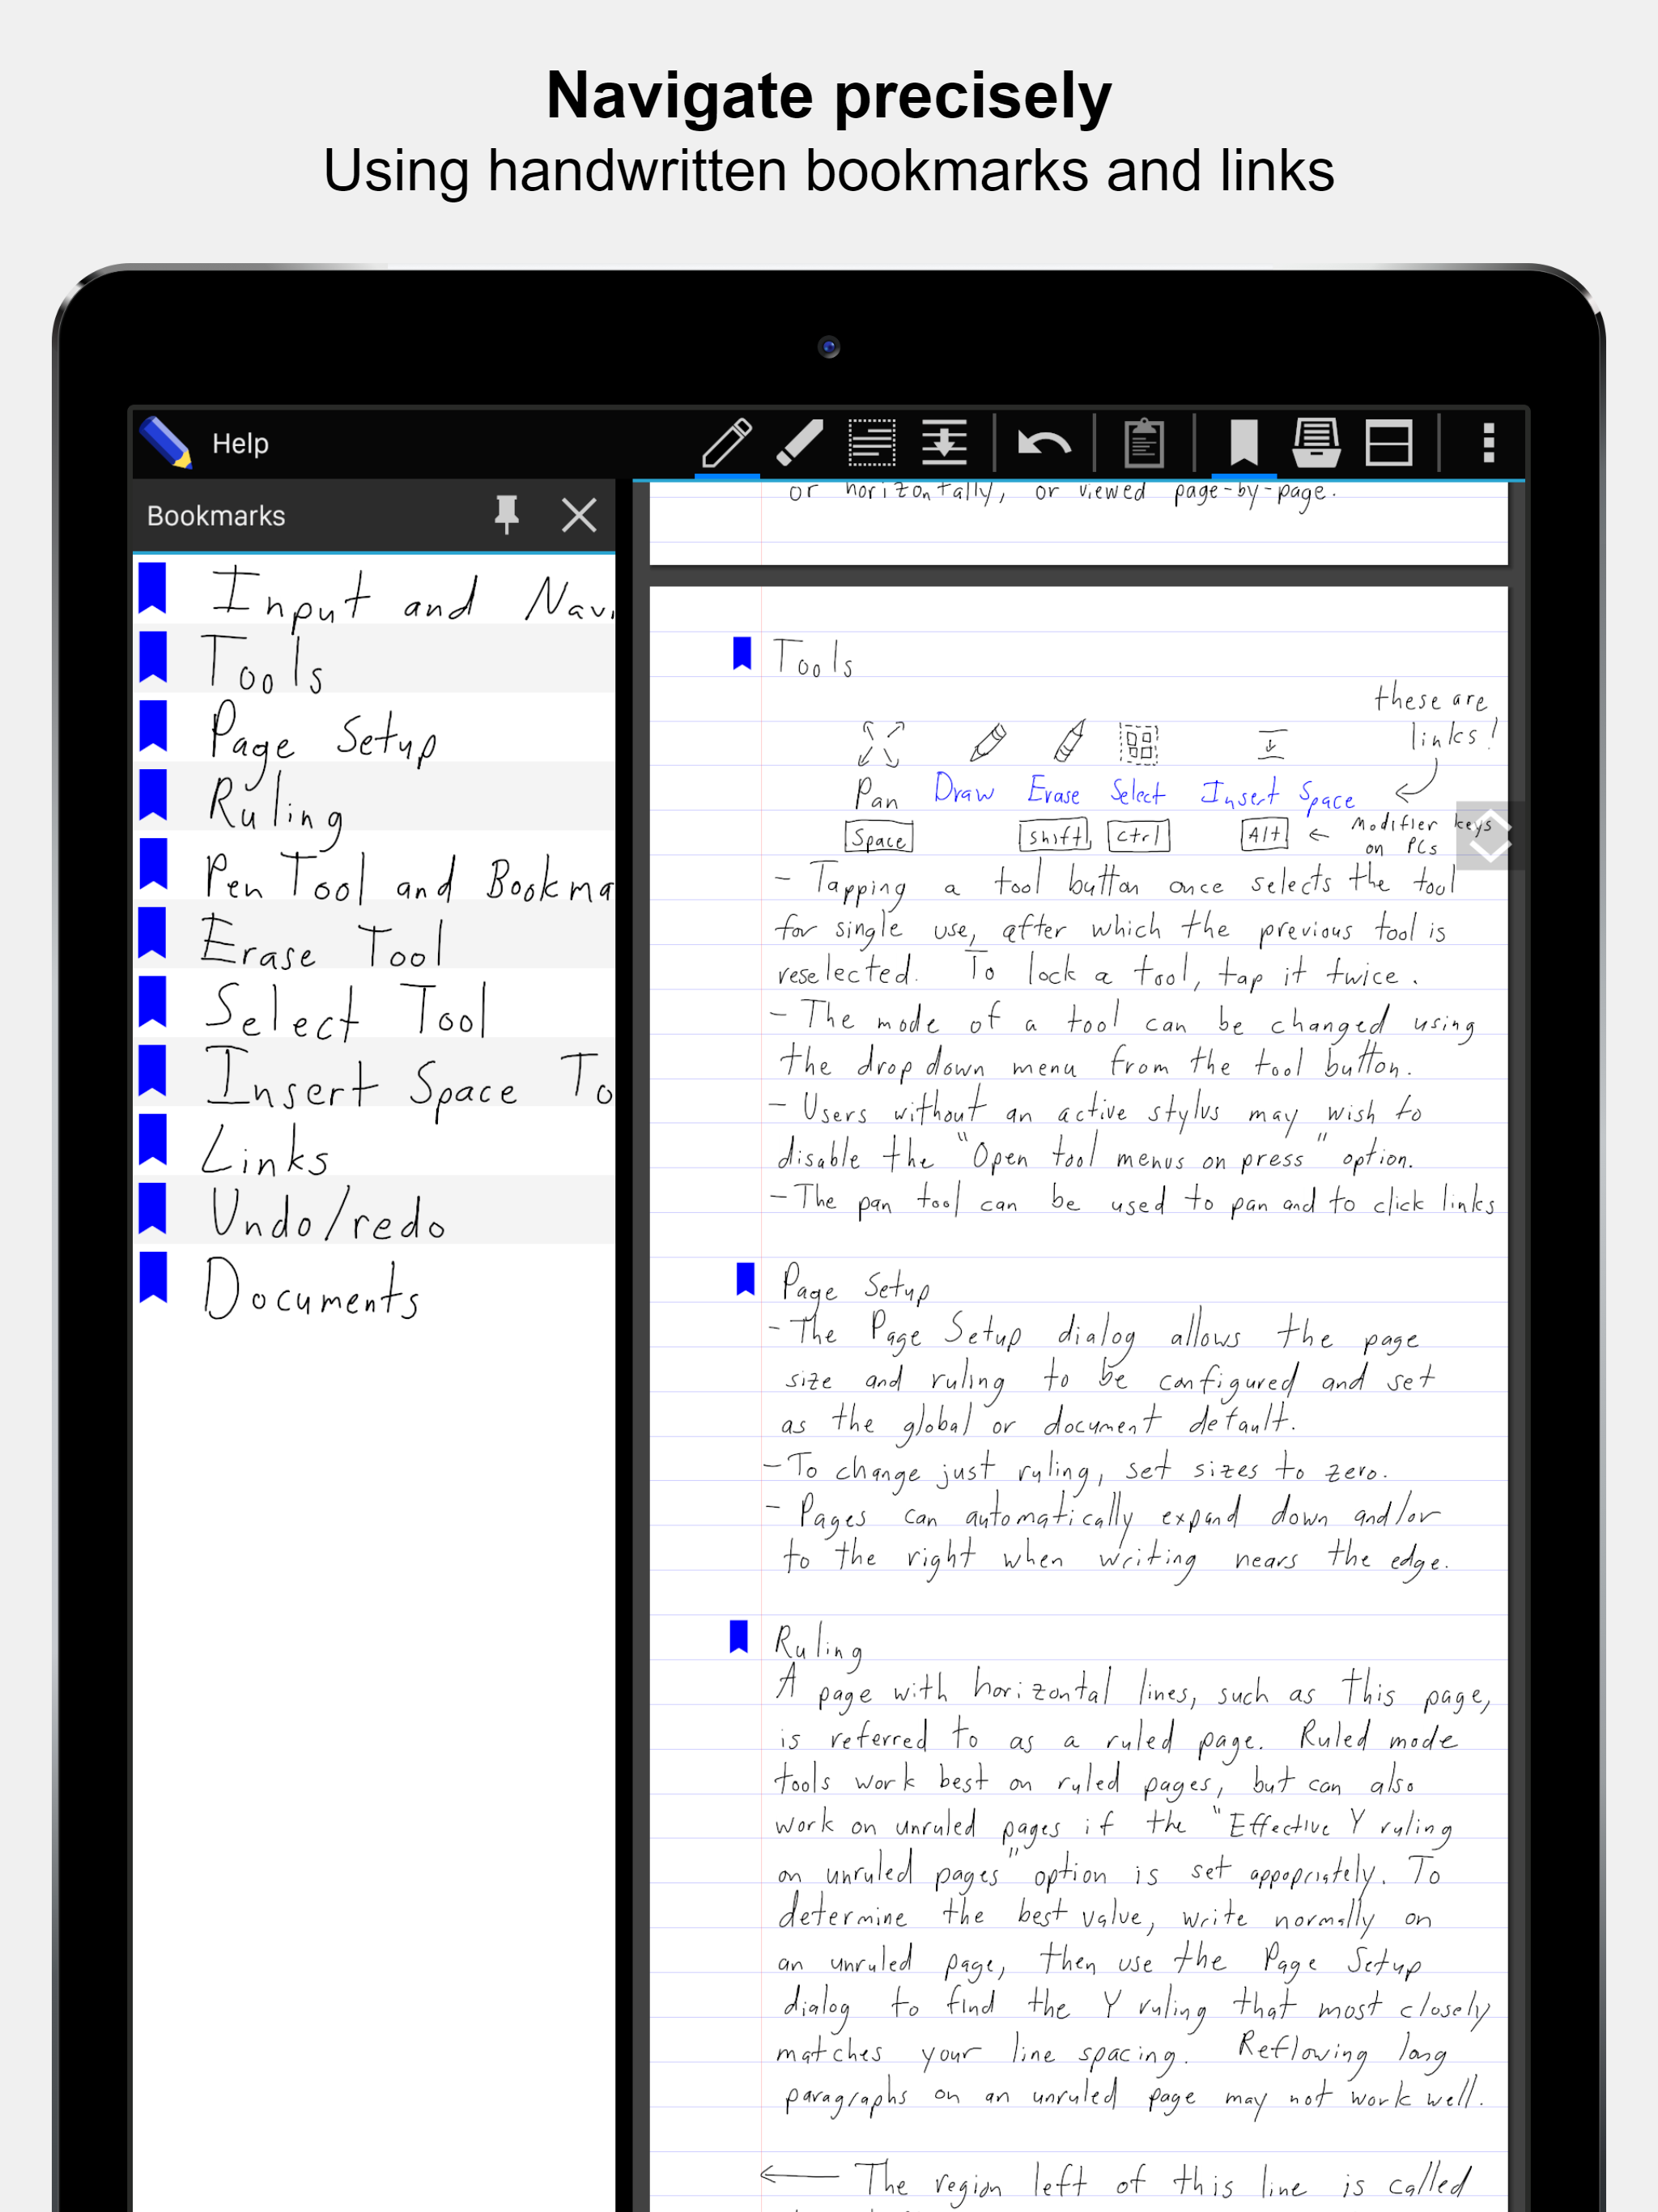 Navigate precisely
Using handwritten bookmarks and links
Help
Bookmarks
Input and Navi
Tools
Page Setup
Ruling
Pen Tool and Bookma
Erase Tool
Select Tool
Insert Space To
Links
Undo/redo
Documents
or horizontally, or viewed page-by-page.
Tools
these are
links!
Pan Draw Erase Select Insert Space
Space Shift Ctrl Alt ← Modifier keys
on PCs
- Tapping a tool button once selects the tool
for single use, after which the previous tool is
reselected. To lock a tool, tap it twice.
- The mode of a tool can be changed using
the drop down menu from the tool button.
- Users without an active stylus may wish to
disable the "Open tool menus on press" option.
- The pan tool can be used to pan and to click links
Page Setup
- The Page Setup dialog allows the page
size and ruling to be configured and set
as the global or document default.
- To change just ruling, set sizes to zero.
- Pages can automatically expand down and/or
to the right when writing nears the edge.
Ruling
A page with horizontal lines, such as this page,
is referred to as a ruled page. Ruled mode
tools work best on ruled pages, but can also
work on unruled pages if the "Effective Y ruling
on unruled pages" option is set appopriately. To
determine the best value, write normally on
an unruled page, then use the Page Setup
dialog to find the Y ruling that most closely
matches your line spacing. Reflowing long
paragraphs on an unruled page may not work well.
← The region left of this line is called